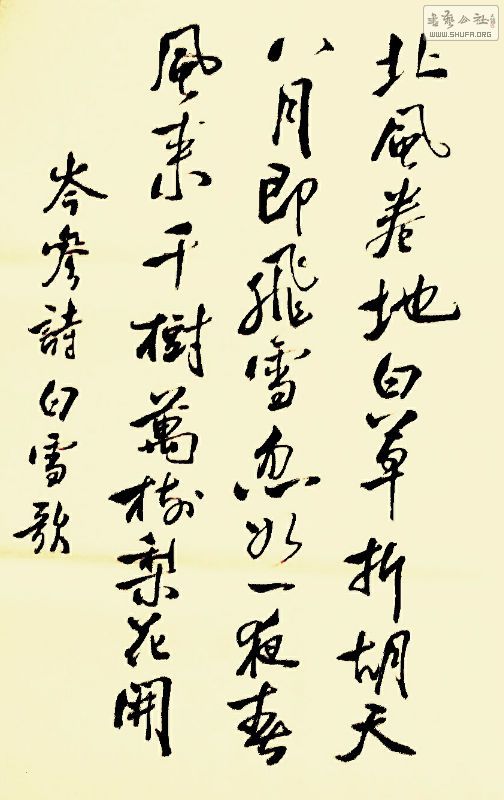 北風卷地白草折胡天
八月即飛雪忽如一夜春
風來千樹萬樹梨花開
岑參詩白雪歌
書藝公社
WWW.SHUFA.ORG